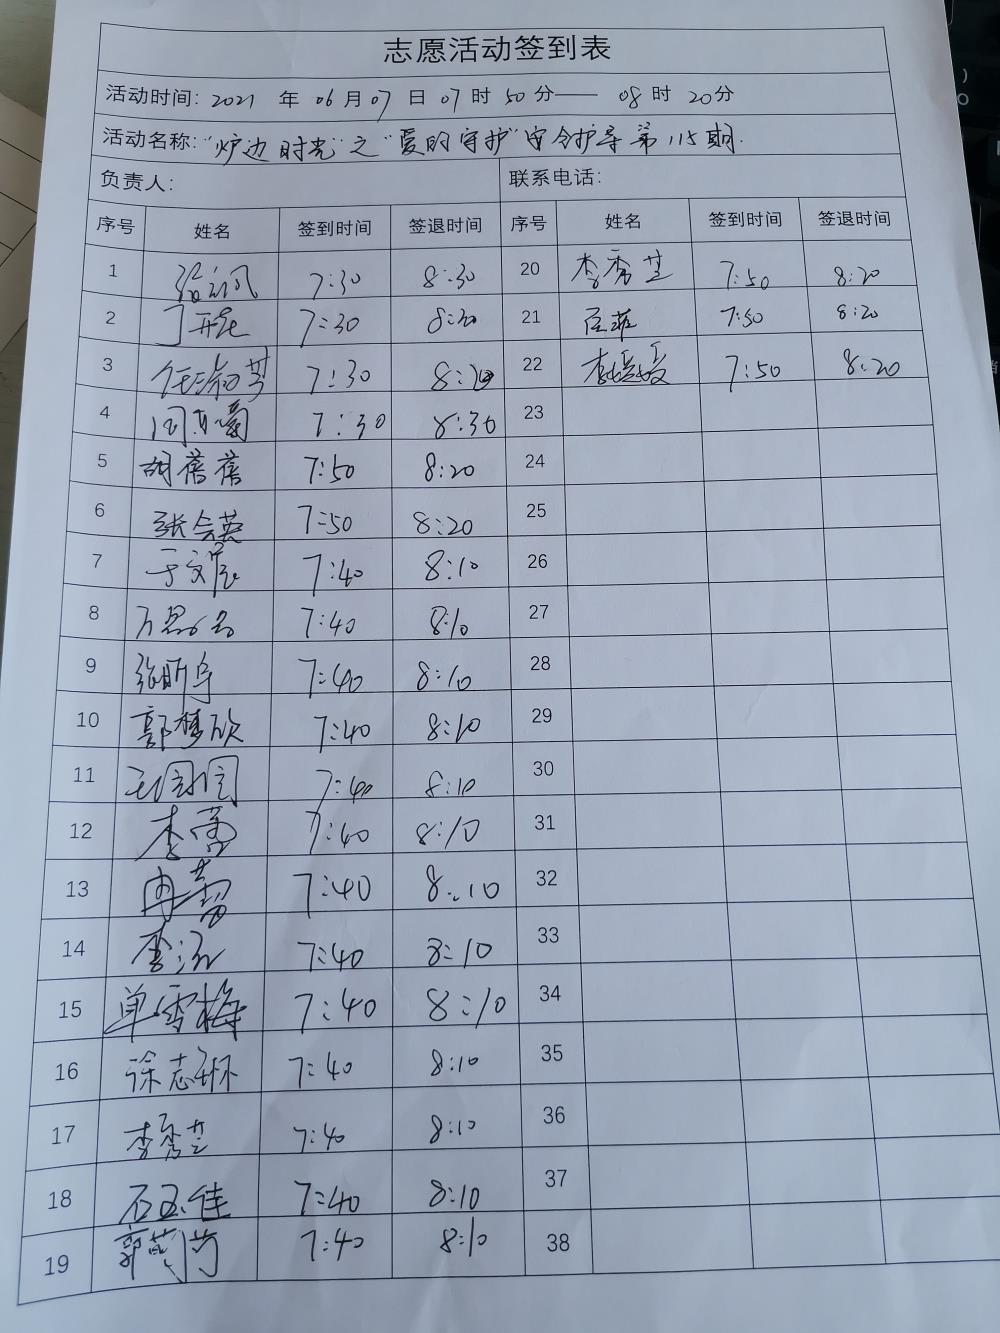 志愿活动签到表
活动时间: 2021 年 06 月 07 日 07 时 50 分—— 08 时 20 分
活动名称: "炉边时光"之"爱的守护"守令护导第115期.
负责人: 联系电话:
序号 姓名 签到时间 签退时间 序号 姓名 签到时间 签退时间
1 7:30 8:30 20 李秀芝 7:50 8:20
2 7:30 8:20 21 7:50 8:20
3 7:30 8:20 22 李媛媛 7:50 8:20
4 7:30 8:30 23
5 胡蓓蓓 7:50 8:20 24
6 张会英 7:50 8:20 25
7 于文 7:40 8:10 26
8 7:40 8:10 27
9 张昕宇 7:40 8:10 28
10 郭梦欣 7:40 8:10 29
11 7:40 8:10 30
12 李 7:40 8:10 31
13 冉 7:40 8:10 32
14 李 7:40 8:10 33
15 单雪梅 7:40 8:10 34
16 徐志琳 7:40 8:10 35
17 李秀芝 7:40 8:10 36
18 石玉佳 7:40 8:10 37
19 郭 7:40 8:10 38